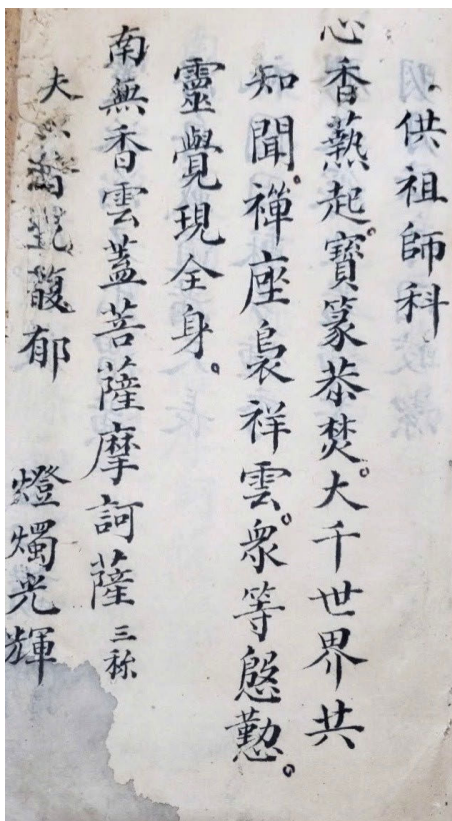 供祖師科
心香爇起。寶篆恭焚。大千世界共
知聞。禪座裊祥雲。衆等慇懃。
靈覺現全身。
南無香雲蓋菩薩摩訶薩 三称
夫馥郁 燈燭光輝